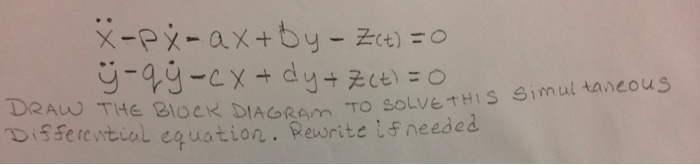 ẍ-pẋ-ax+by-z(t)=0
ÿ-qẏ-cx+dy+z(t)=0
DRAW THE BLOCK DIAGRAM TO SOLVE THIS Simultaneous
Differential equation. Rewrite if needed